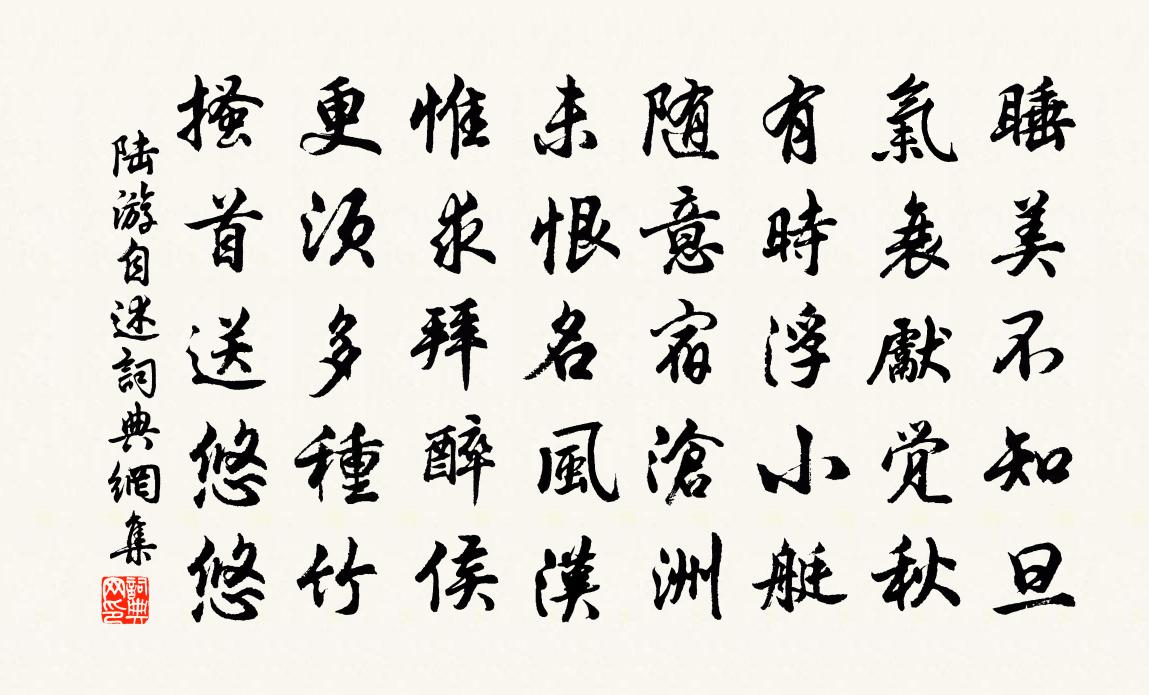 睡美不知旦
氣衰獻觉秋
有時浮小艇
随意宿滄洲
未恨名風漢
惟求拜醉侯
更须多種竹
搔首送悠悠
陆游自述詞典網集
詞典网印